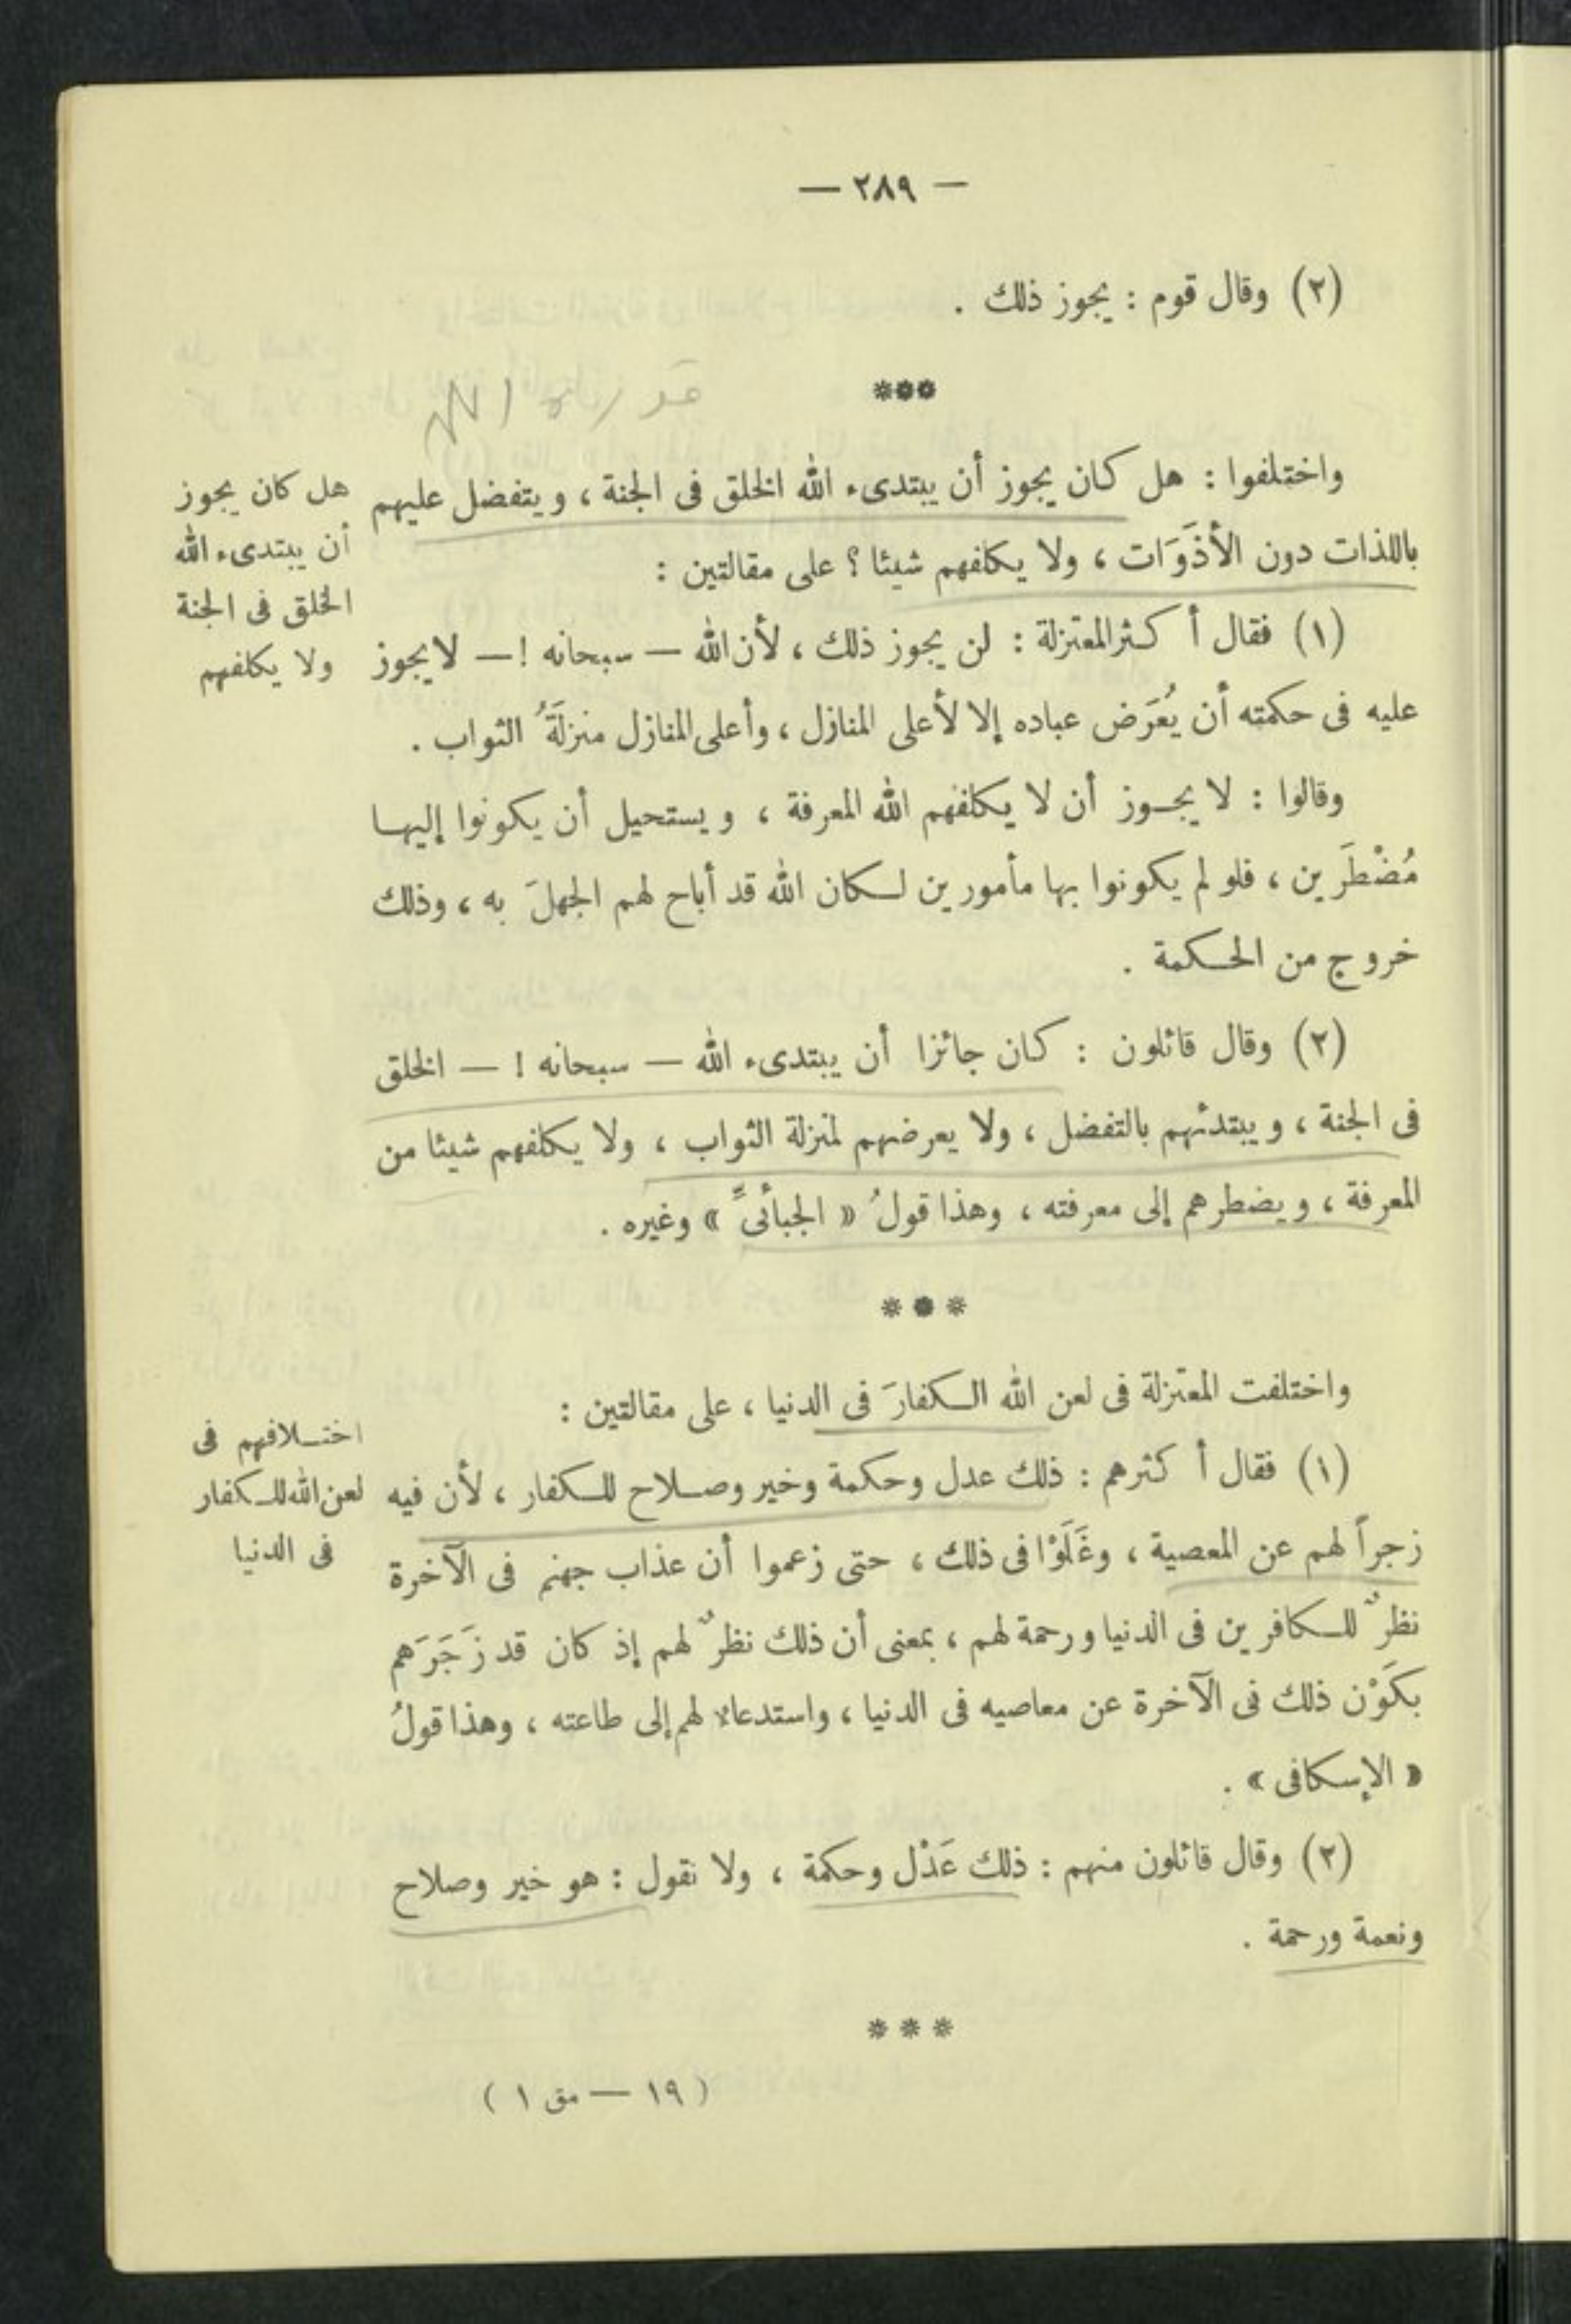 — ٢٨٩ —
(٢) وقال قوم : يجوز ذلك .
***
واختلفوا : هل كان يجوز أن يبتدىء الله الخلق فى الجنة ، ويتفضل عليهم
باللذات دون الأذَوَات ، ولا يكلفهم شيئا ؟ على مقالتين :
هل كان يجوز
أن يبتدىء الله
الخلق فى الجنة
ولا يكلفهم
(١) فقال أكثر المعتزلة : لن يجوز ذلك ، لأن الله — سبحانه ! — لا يجوز
عليه فى حكمته أن يُعَرَض عباده إلا لأعلى المنازل ، وأعلى المنازل منزلَةُ الثواب .
وقالوا : لا يجوز أن لا يكلفهم الله المعرفة ، ويستحيل أن يكونوا إليها
مُضْطَرين ، فلو لم يكونوا بها مأمورين لكان الله قد أباح لهم الجهلَ به ، وذلك
خروج من الحكمة .
(٢) وقال قائلون : كان جائزا أن يبتدىء الله — سبحانه ! — الخلق
فى الجنة ، ويبتدئهم بالتفضل ، ولا يعرضهم لمنزلة الثواب ، ولا يكلفهم شيئا من
المعرفة ، ويضطرهم إلى معرفته ، وهذا قولُ « الجبائىِّ » وغيره .
* * *
واختلفت المعتزلة فى لعن الله الكفارَ فى الدنيا ، على مقالتين :
اختلافهم فى
لعن الله للكفار
فى الدنيا
(١) فقال أكثرهم : ذلك عدل وحكمة وخير وصلاح للكفار ، لأن فيه
زجراً لهم عن المعصية ، وغَلَوْا فى ذلك ، حتى زعموا أن عذاب جهنم فى الآخرة
نظرٌ للكافرين فى الدنيا ورحمة لهم ، بمعنى أن ذلك نظرٌ لهم إذ كان قد زَجَرَهم
بكَوْن ذلك فى الآخرة عن معاصيه فى الدنيا ، واستدعاء لهم إلى طاعته ، وهذا قولُ
« الإسكافى » .
(٢) وقال قائلون منهم : ذلك عَدْل وحكمة ، ولا نقول : هو خير وصلاح
ونعمة ورحمة .
* * *
( ١٩ — مق ١ )